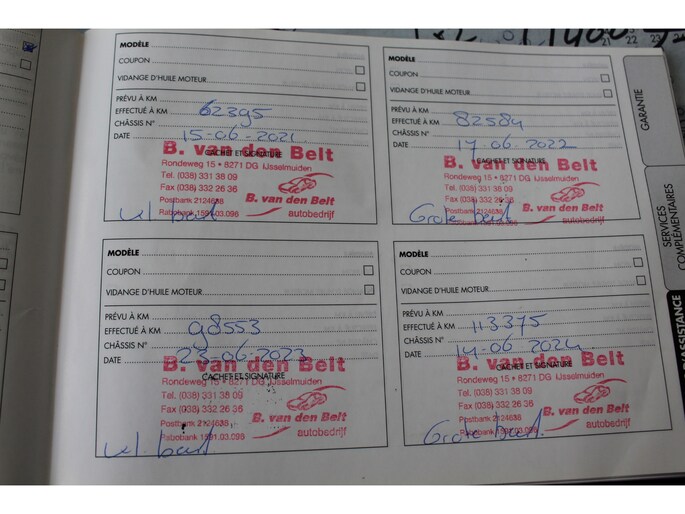 MODÈLE
COUPON
VIDANGE D'HUILE MOTEUR
PRÉVU À KM
EFFECTUÉ À KM 62395
CHÂSSIS N°
DATE 15-06-2021
CACHET ET SIGNATURE
B. van den Belt
Rondeweg 15 • 8271 DG IJsselmuiden
Tel. (038) 331 38 09
Fax (038) 332 26 36
Postbank 2124638
Rabobank 1591.03.098
B. van den Belt
autobedrijf
kl. beurt
MODÈLE
COUPON
VIDANGE D'HUILE MOTEUR
PRÉVU À KM
EFFECTUÉ À KM 82584
CHÂSSIS N°
DATE 17-06-2022
CACHET ET SIGNATURE
B. van den Belt
Rondeweg 15 • 8271 DG IJsselmuiden
Tel. (038) 331 38 09
Fax (038) 332 26 36
Postbank 2124638
Rabobank 1591.03.098
B. van den Belt
autobedrijf
Grote beurt
MODÈLE
COUPON
VIDANGE D'HUILE MOTEUR
PRÉVU À KM
EFFECTUÉ À KM 98553
CHÂSSIS N°
DATE 23-06-2023
CACHET ET SIGNATURE
B. van den Belt
Rondeweg 15 • 8271 DG IJsselmuiden
Tel. (038) 331 38 09
Fax (038) 332 26 36
Postbank 2124638
Rabobank 1591.03.098
B. van den Belt
autobedrijf
kl. beurt
MODÈLE
COUPON
VIDANGE D'HUILE MOTEUR
PRÉVU À KM
EFFECTUÉ À KM 113375
CHÂSSIS N°
DATE 14-06-2024
CACHET ET SIGNATURE
B. van den Belt
Rondeweg 15 • 8271 DG IJsselmuiden
Tel. (038) 331 38 09
Fax (038) 332 26 36
Postbank 2124638
Rabobank 1591.03.098
B. van den Belt
autobedrijf
Grote beurt
GARANTIE
SERVICES
COMPLÉMENTAIRES